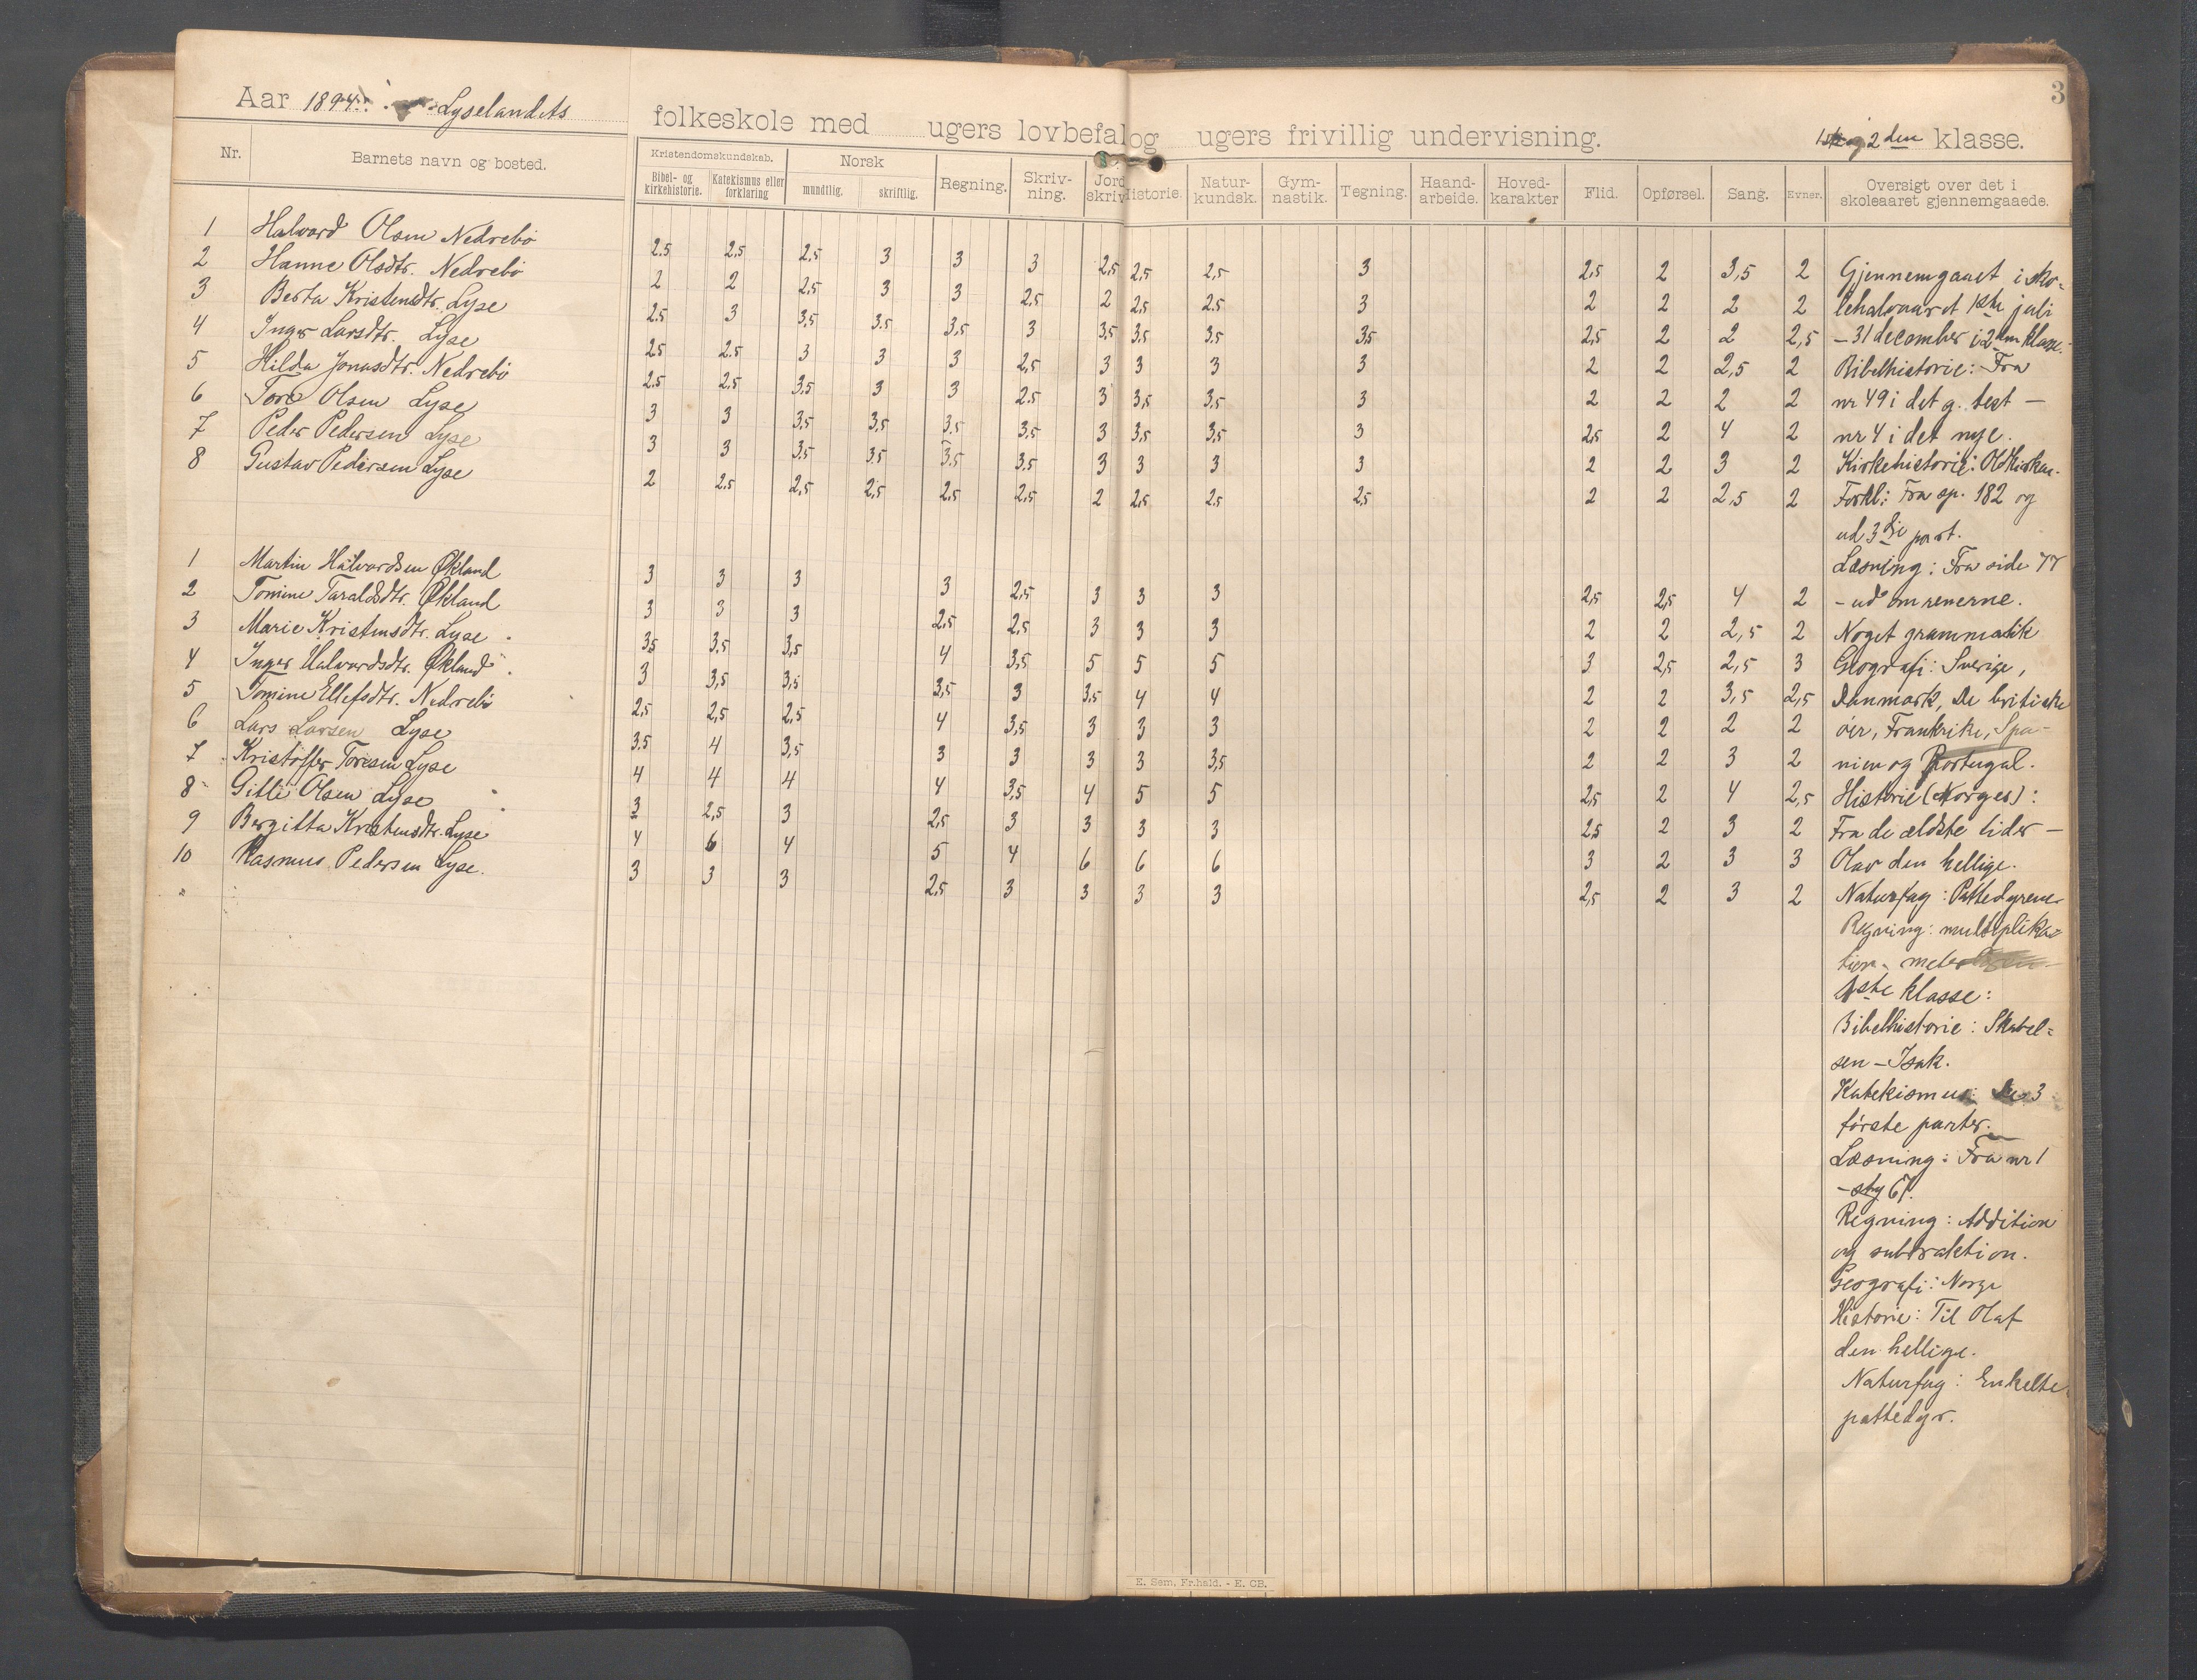 3
Aar 1894 Lyselandets folkeskole med ugers lovbefal og ugers frivillig undervisning. 1ste og 2den klasse.
Nr. Barnets navn og bosted. Kristendomskundskab. Norsk Regning. Skriv- ning. Jord skriv Historie. Natur- kundsk. Gym- nastik. Tegning. Haand- arbeide. Hoved- karakter Flid. Opførsel. Sang. Evner. Oversigt over det i skoleaaret gjennemgaaede.
Bibel- og kirkehistorie. Katekismus eller forklaring mundtlig. skriftlig.
1 Halvard Olsen Nedrebö 2.5 2,5 2,5 3 3 3 2,5 2,5 2,5 3 2,5 2 3,5 2
2 Hanne Olsdtr. Nedrebö 2 2 2,5 3 3 2,5 2 2,5 2.5 3 2 2 2 2
3 Berta Kristensdtr. Lyse 2.5 3 3,5 3.5 3,5 3 3,5 3,5 3,5 3,5 2,5 2 2 2,5
4 Inger Larsdtr. Lyse 2.5 2.5 3 3 3 2,5 3 3 3 3 2 2 2,5 2
5 Hilda Jonasdtr. Nedrebö 2.5 2,5 3,5 3 3 2.5 3 3,5 3,5 3 2 2 2 2
6 Tore Olsen Lyse 3 3 3,5 3,5 3.5 3,5 3 3,5 3,5 3 2,5 2 4 2
7 Peder Pedersen Lyse 3 3 3.5 3,5 3,5 3,5 3 3 3 3 2 2 3 2
8 Gustav Pedersen Lyse 2 2.5 2,5 2,5 2,5 2,5 2 2,5 2.5 2,5 2 2 2,5 2
1 Martin Halvardsen Økland 3 3 3 3 2,5 3 3 3 2,5 2,5 4 2
2 Tomine Taraldsdtr. Økland 3 3 3 2,5 2,5 3 3 3 2 2 2,5 2
3 Marie Kristensdtr. Lyse 3,5 3,5 3,5 4 3,5 5 5 5 3 2,5 2,5 3
4 Inger Halvardsdtr. Økland 3 3,5 3,5 3,5 3 3,5 4 4 2 2 3,5 2,5
5 Tomine Ellefsdtr. Nedrebö 2,5 2,5 2,5 4 3,5 3 3 3 2 2 2 2
6 Lars Larsen Lyse 3,5 4 3,5 3 3 3 3 3,5 2 2 3 2
7 Kristoffer Toresen Lyse 4 4 4 4 3,5 4 5 5 2,5 2 4 2,5
8 Gitle Olsen Lyse 3 2,5 3 2,5 3 3 3 3 2,5 2 3 2
9 Bergitta Kristensdtr. Lyse 4 6 4 5 4 6 6 6 3 2 3 3
10 Rasmus Pedersen Lyse. 3 3 3 2,5 3 3 3 3 2,5 2 3 2
Gjennemgaaet i sko-
lehalvaaret 1ste juli
– 31 december i 2den klasse.
Bibelhistorie: Fra
nr 49 i det g. test –
nr 4 i det nye.
Kirkehistorie: Oldkirken.
Forkl: Fra sp. 182 og
ud 3die part.
Læsning: Fra side 77
– ud om renerne.
Noget grammatik
Geografi: Sverige,
Danmark, De britiske
öer, Frankrike, Spa-
nien og Portugal.
Historie (Norges):
Fra de ældste tider –
Olav den hellige.
Naturfag: Pattedyrene
Regning: multiplika-
tion
1ste klasse:
Bibelhistorie: Skabel-
sen – Isak.
Katekismus: De 3
förste parter.
Læsning: Fra nr 1
– 67.
Regning: Addition
og subtraktion.
Geografi: Norge
Historie: Til Olaf
den hellige.
Naturfag: Enkelte
pattedyr.
E. Sem, Fr.hald. - E. CB.